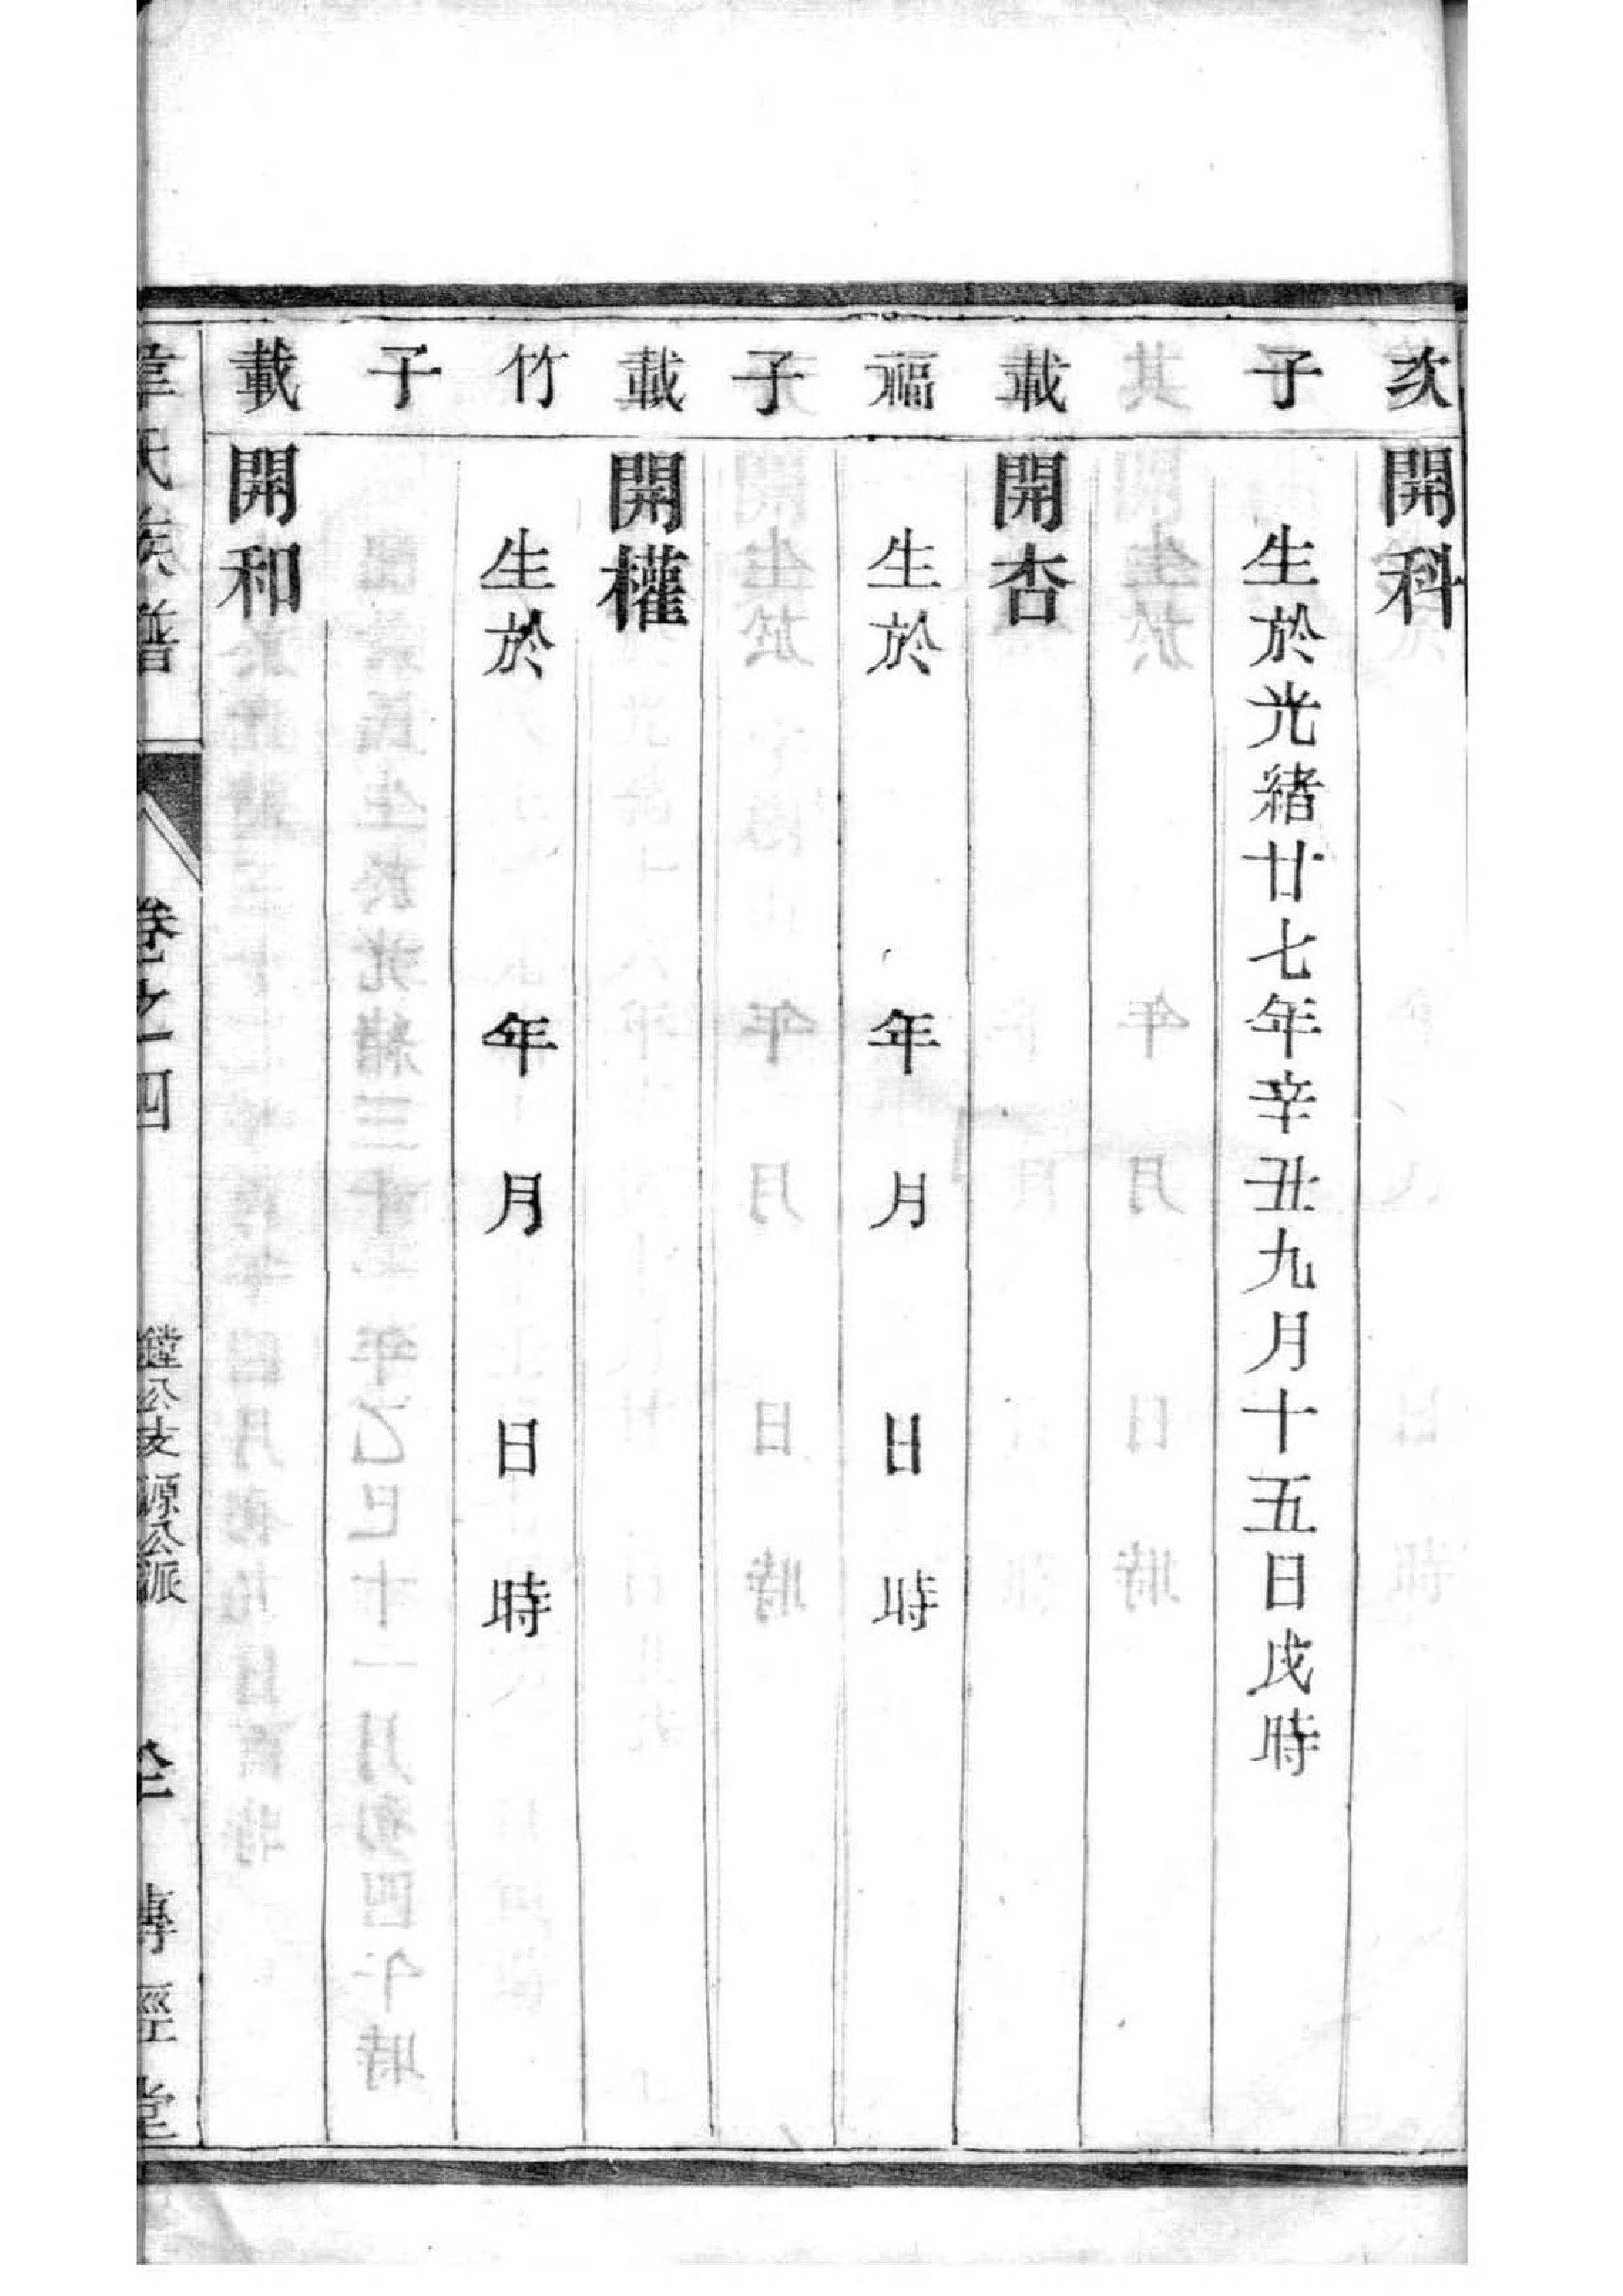 次 開科
子 生於光緒廿七年辛丑九月十五日戌時
其
載 開杏
福 生於 年 月 日 時
子
載 開權
竹 生於 年 月 日 時
子
載 開和
韋氏族譜 卷之四 鏜公支源公派 傳經堂